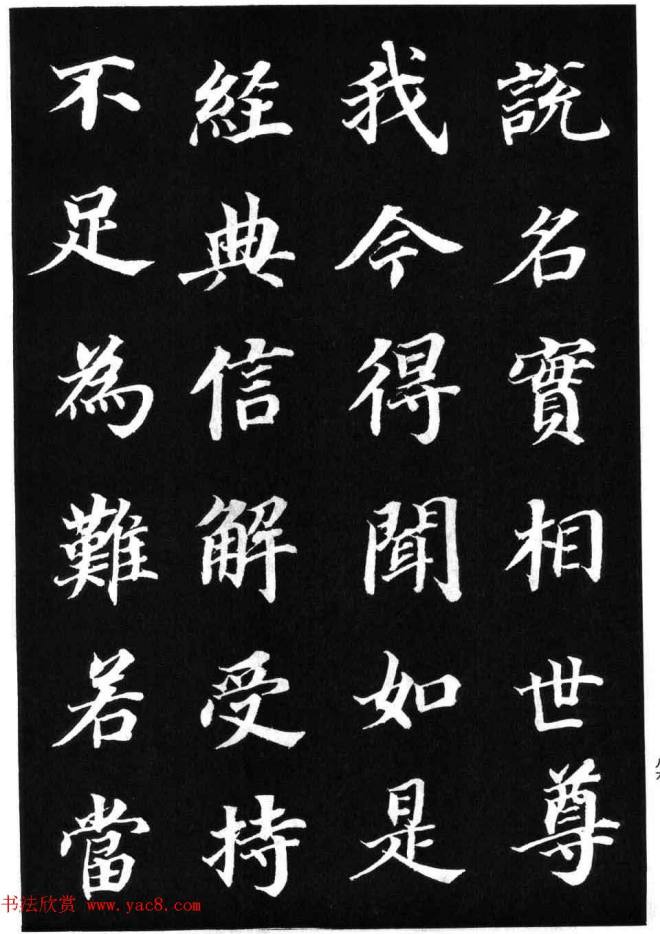 說名實相世尊
我今得聞如是
経典信解受持
不足為難若當
书法欣赏 www.yac8.com